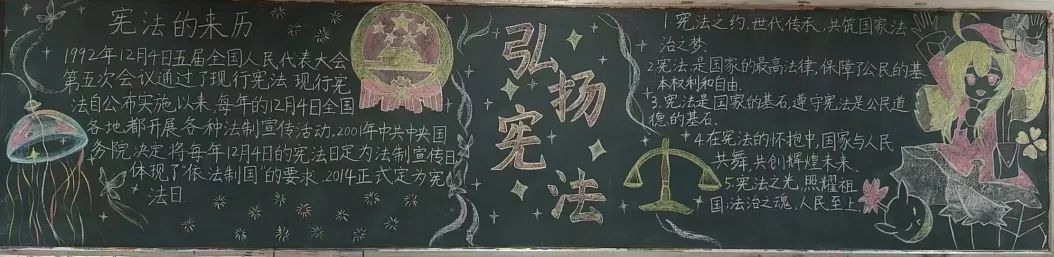 宪法的来历
1992年12月4日五届全国人民代表大会
第五次会议通过了现行宪法,现行宪
法自公布实施以来,每年的12月4日全国
各地都开展各种法制宣传活动.2001年中共中央国
务院,决定将每年12月4日的宪法日定为法制宣传日
体现了"依法制国"的要求.2014正式定为宪
法日.
弘扬
宪法
1宪法之约,世代传承,共筑国家法
治之梦.
2.宪法是国家的最高法律,保障了公民的基
本权利和自由.
3.宪法是国家的基石,遵守宪法是公民道
德的基石.
4.在宪法的怀抱中,国家与人民
共舞,共创辉煌未来.
5.宪法之光,照耀祖
国;法治之魂,人民至上.